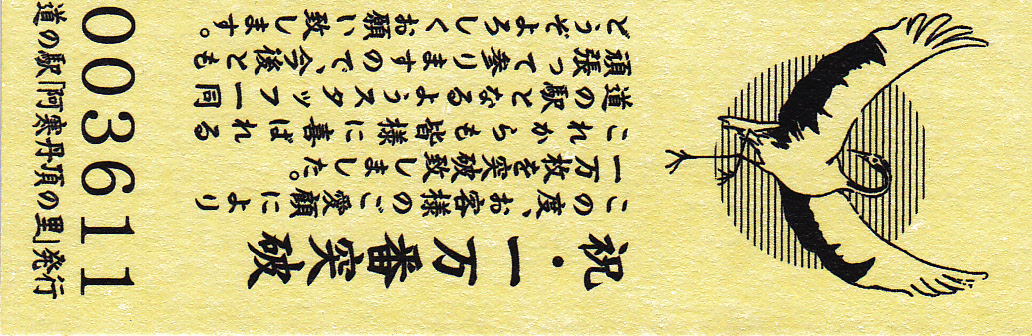 祝・一万番突破
この度、お客様のご愛顧により
一万枚を突破致しました。
これからも皆様に喜ばれる
道の駅となるようスタッフ一同
頑張って参りますので、今後とも
どうぞよろしくお願い致します。
003611
道の駅「阿寒丹頂の里」発行